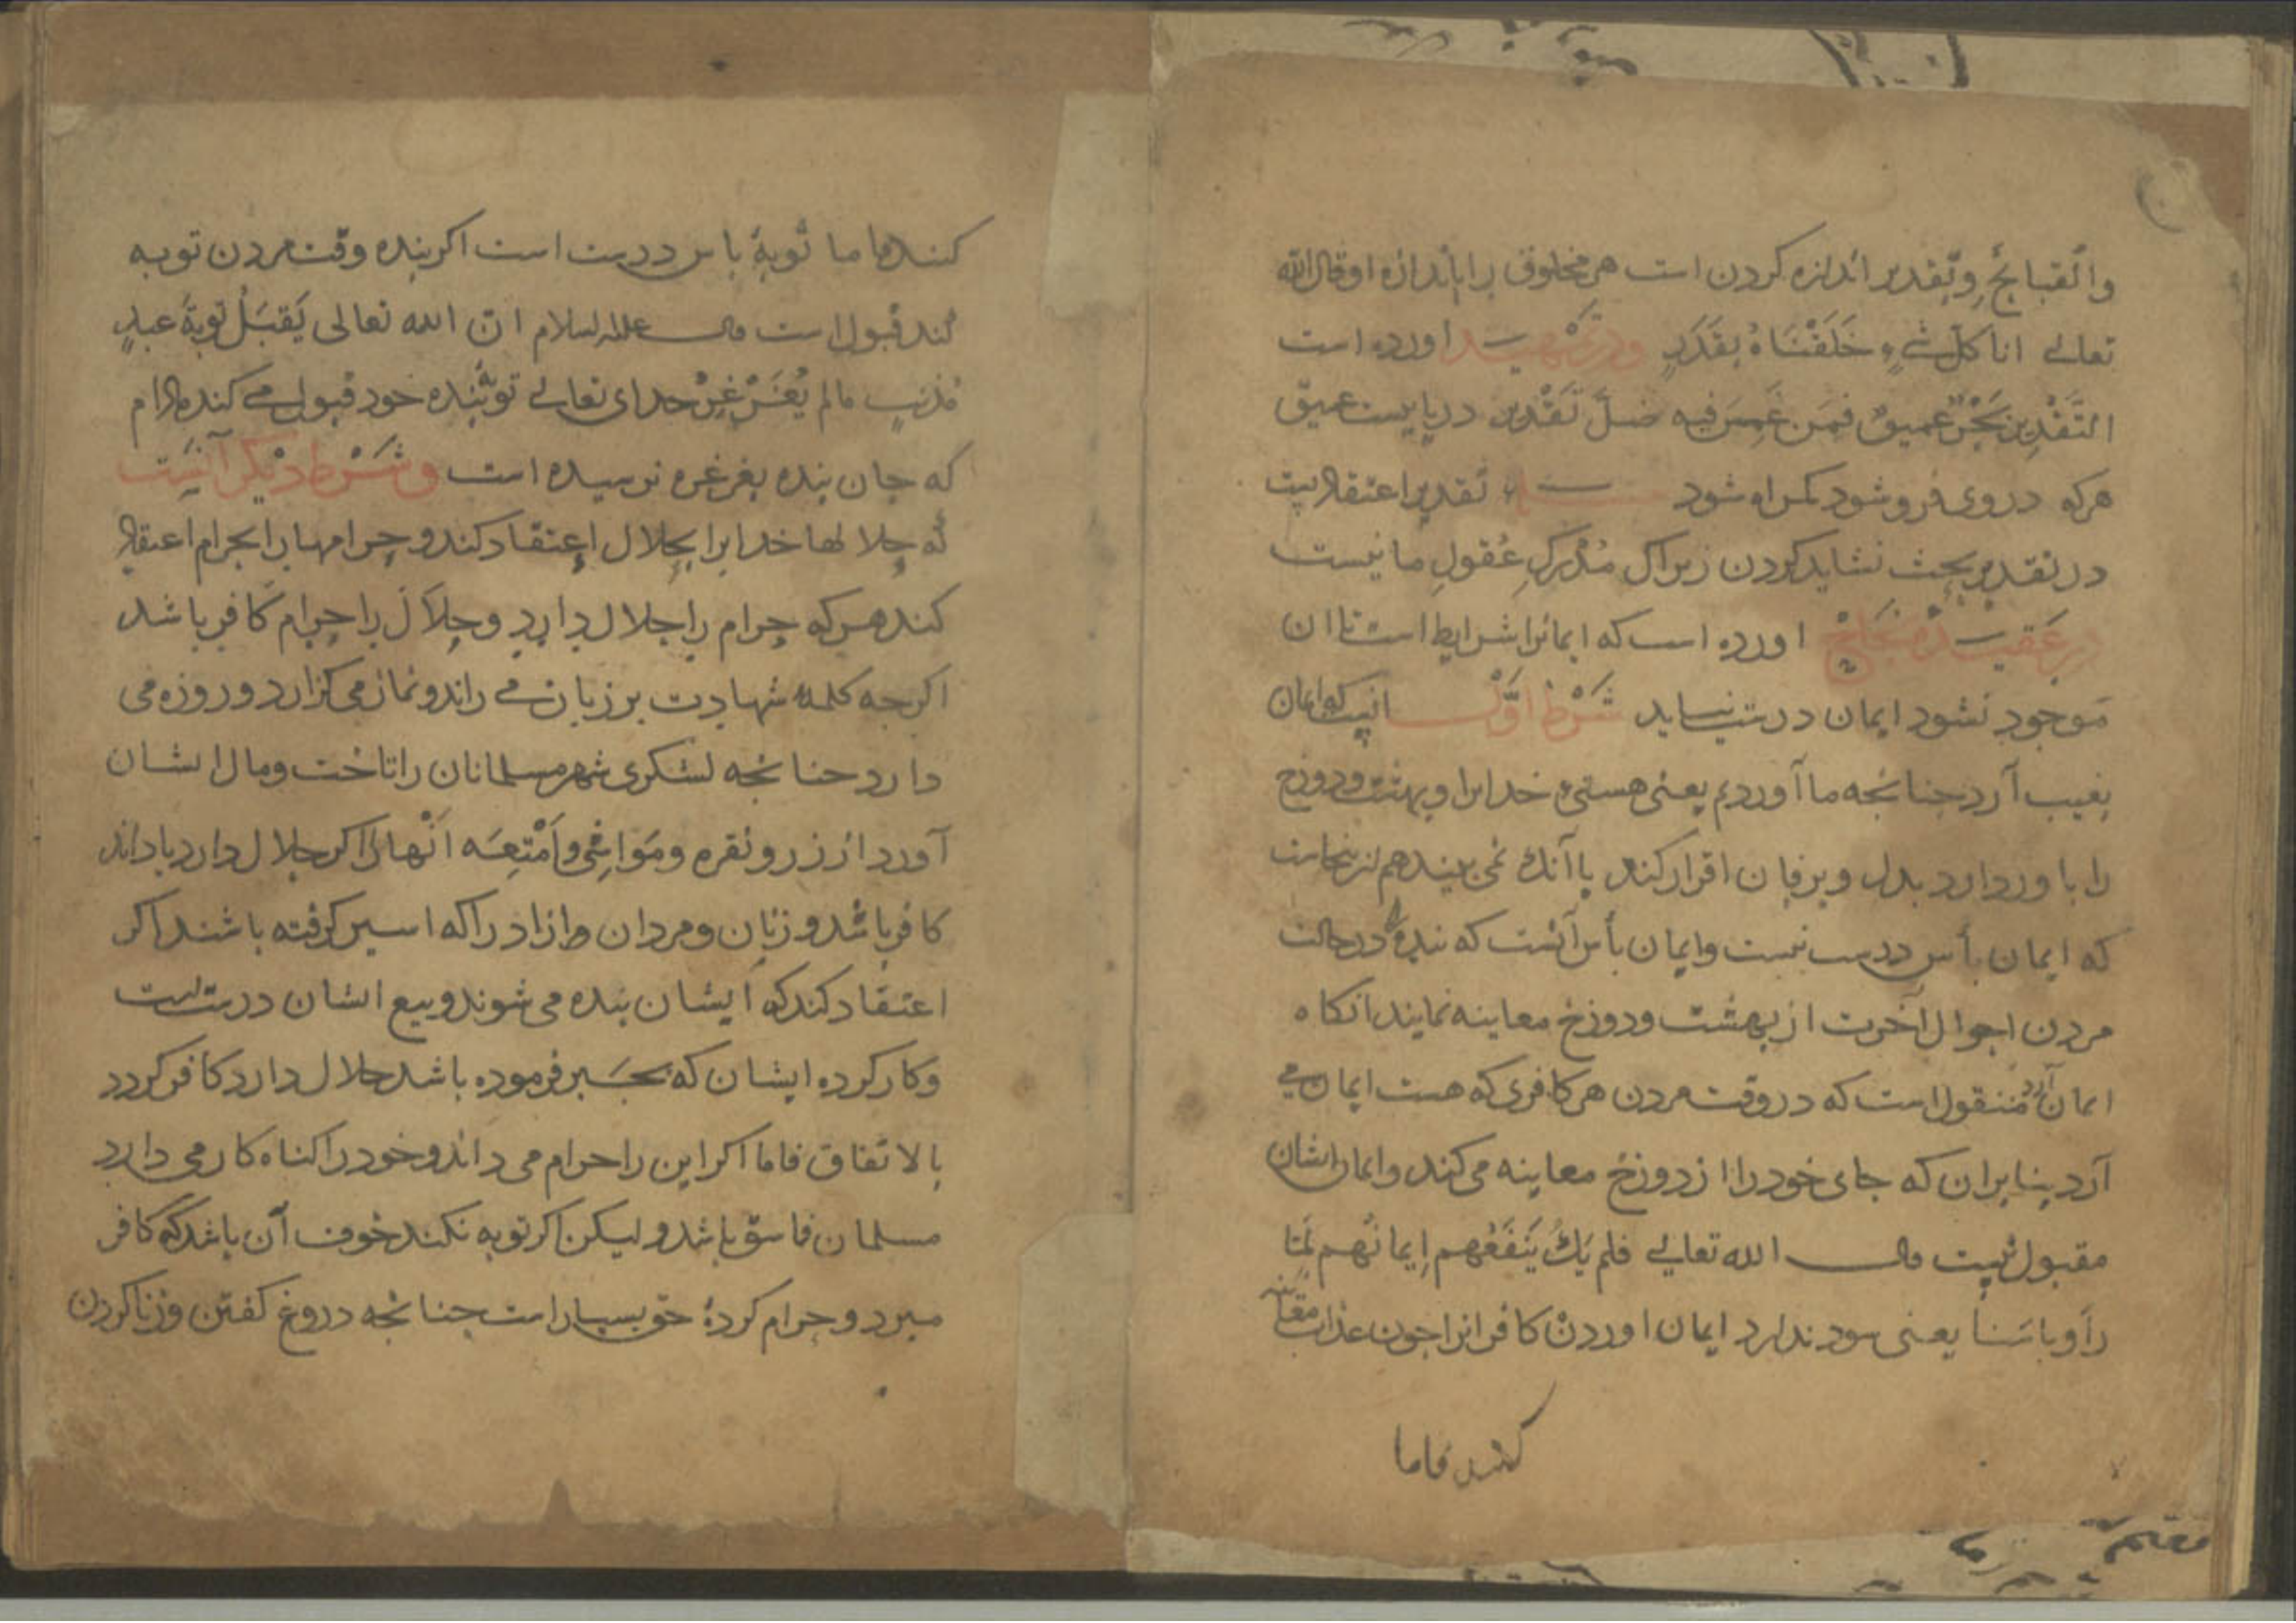 والقبایح وتقدیر اندازه کردن است هر مخلوق را باندازه او قال الله
تعالی انا کل شیء خلقناه بقدر ودر تمهید اورده است
التقدیر بحر عمیق فمن غمس فیه ضل تقدیر دریاییست عمیق
هرکه در وی فرو شود کمراه شود تقدیر اعتقادیت
در تقدیر بحث نشاید کردن زیراک مدرک عقول ما نیست
در عقیده اورده است که ایمانرا شرایط است تا ان
موجود نشود ایمان درست نیاید شرط اول انیست که ایمان
بغیب آرد جنانجه ما آوردیم یعنی هستی خدایرا و بهشت ودوزخ
را باور دارد بدل وبزفان اقرار کند با آنک نمی بیند هم
که ایمان بأس درست نیست وایمان بأس آنست که بنده را در حالت
مردن احوال آخرت از بهشت ودوزخ معاینه نمایند انکاه
ایمان آرد منقول است که در وقت مردن هر کافری که هست ایمان می
آرد بنا بران که جای خود را از دوزخ معاینه می کند وایمان ایشان
مقبول نیست قال الله تعالی فلم یک ینفعهم ایمانهم لما
رأوا باسنا یعنی سود ندارد ایمان اوردن کافرانرا جون عذاب معاینه
کنند فاما
کنند فاما توبهٔ باس درست است اکر بنده وقت مردن توبه
کند قبول است قال علیه السلام ان الله تعالی یقبل توبة عبد
مذنب مالم یغرغر خدای تعالی توبه بنده خود قبول می کند مادام
که جان بنده بغرغره نرسیده است وشرط دیکر آنیست
که حلالهاء خدایرا بحلال اعتقاد کند وحرامها را بحرام اعتقاد
کند هر که حرام را حلال دارد وحلال را حرام کافر باشد
اکرجه کلمهٔ شهادت بر زبان می راند ونماز می کزارد وروزه می
دارد جنانجه لشکری شهر مسلمانان را تاخت ومال ایشان
آورد از زر ونقره ومواشی وامتعه انها را اکر حلال دارد یا داند
کافر باشد وزنان ومردان وازاد را که اسیر کرفته باشند اکر
اعتقاد کند که ایشان بنده می شوند وبیع ایشان درستست
وکار کرده ایشان که بجبر فرموده باشد حلال دارد کافر کردد
بالاتفاق فاما اکر این را حرام می داند وخود را کناه کار می دارد
مسلمان فاسق باشد ولیکن اکر توبه نکند خوف آن باشد که کافر
میرد وحرام کردهٔ حق بسیار است جنانجه دروغ کفتن وزنا کردن